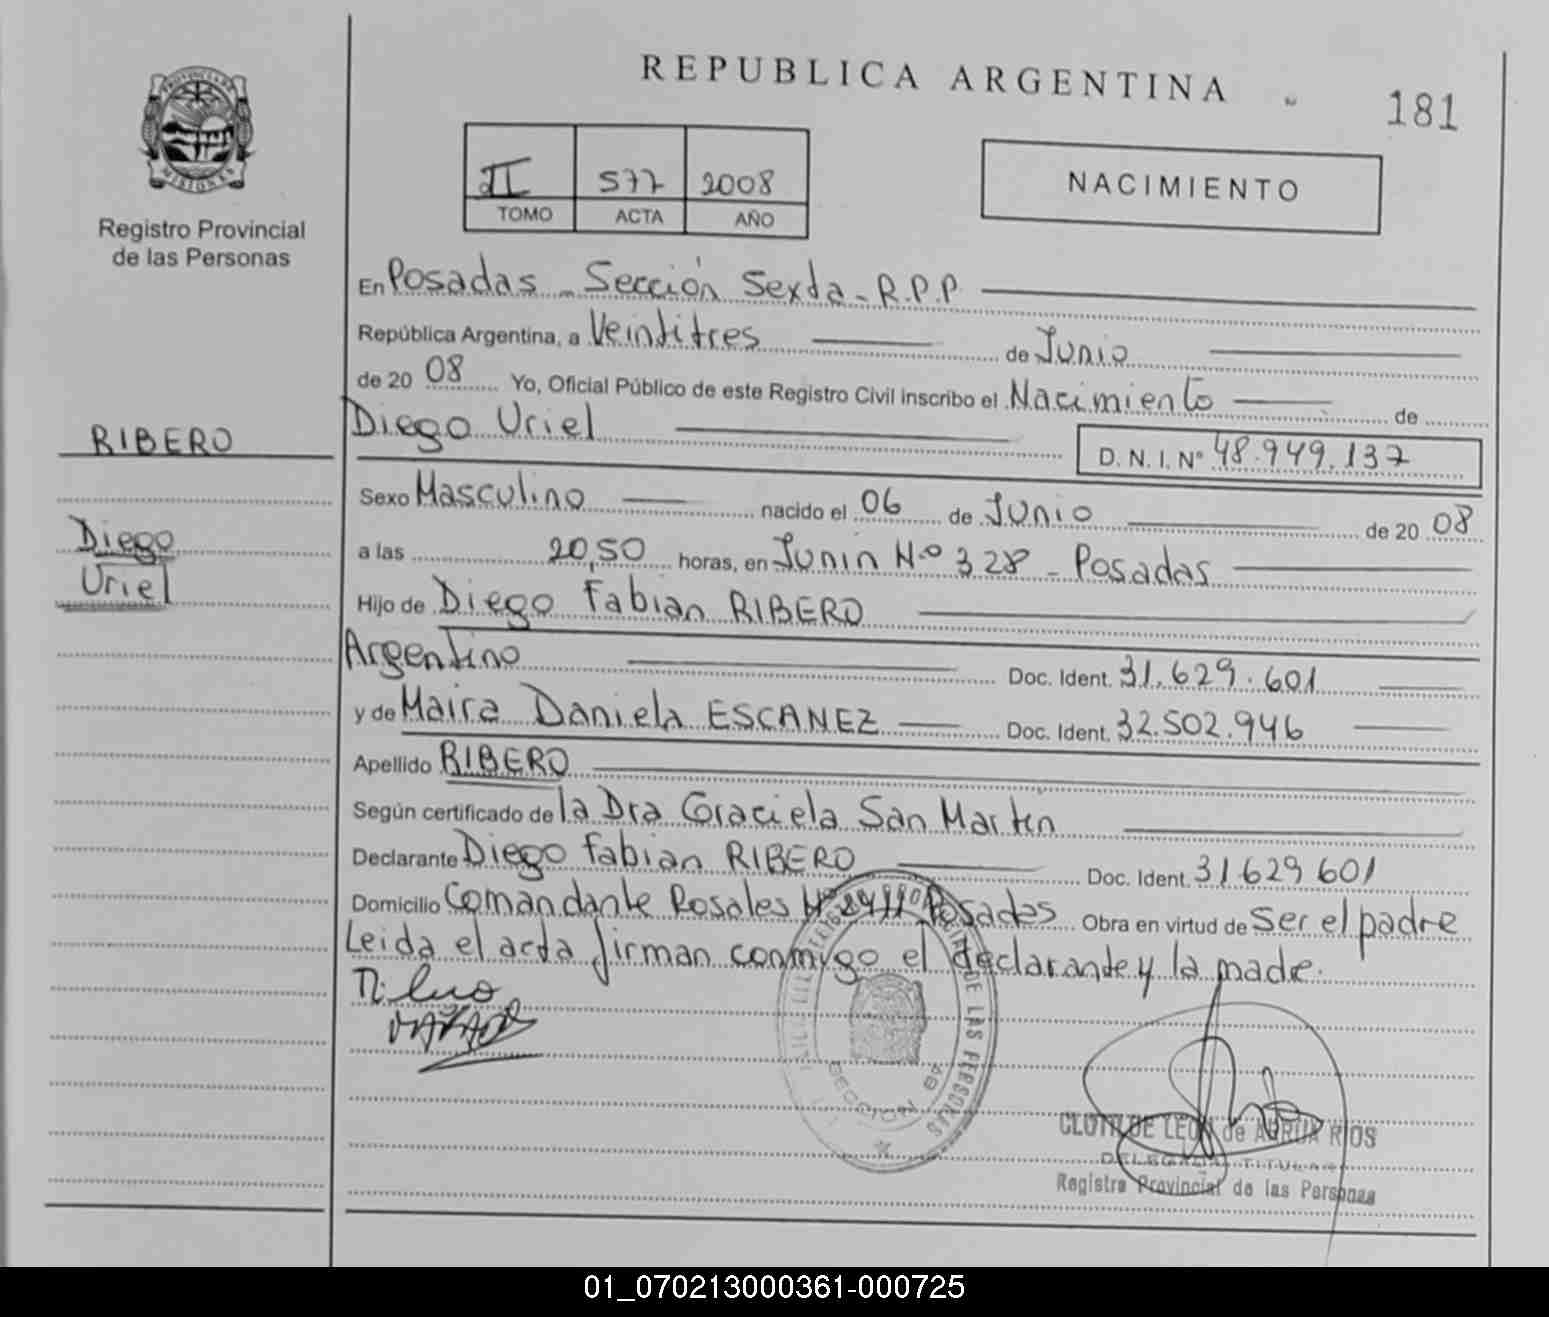 REPUBLICA ARGENTINA
181
PROVINCIA DE
MISIONES
Registro Provincial
de las Personas
II 577 2008
TOMO ACTA AÑO
NACIMIENTO
En Posadas - Sección Sexta - R.P.P.
República Argentina, a Veintitres de Junio
de 20 08 Yo, Oficial Público de este Registro Civil inscribo el Nacimiento de
RIBERO
Diego Uriel
D. N. I. Nº 48.949.137
Sexo Masculino nacido el 06 de Junio de 20 08
Diego
Uriel
a las 20,50 horas, en Junin Nº 328 - Posadas
Hijo de Diego Fabian RIBERO
Argentino Doc. Ident. 31.629.601
y de Maira Daniela ESCANEZ Doc. Ident. 32.502.946
Apellido RIBERO
Según certificado de la Dra Graciela San Martin
Declarante Diego Fabian RIBERO Doc. Ident. 31629601
Domicilio Comandante Rosales Nº 2911 Posadas Obra en virtud de Ser el padre
Leida el acta firman conmigo el declarante y la madre.
DE LAS PERSONAS
SECCION 6ª
CLOTILDE LEON de ABRUA RIOS
DELEGADA TITULAR
Registro Provincial de las Personas
01_070213000361-000725